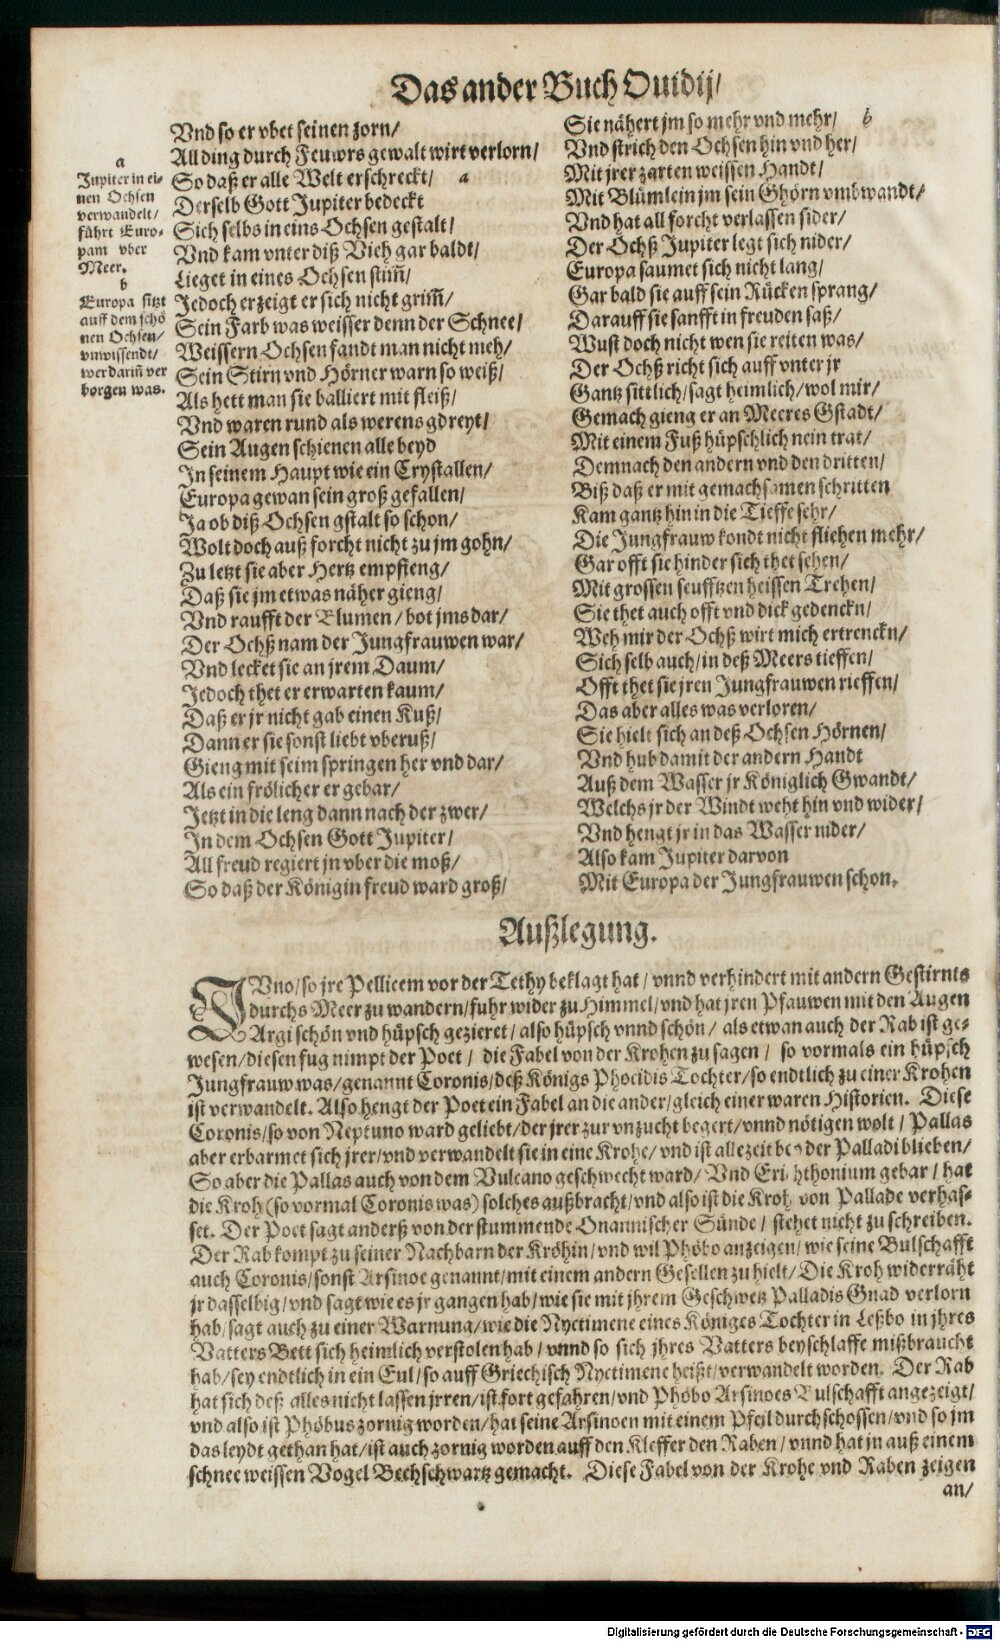 Das ander Buch Ouidij/
Vnd so er vbet seinen zorn/
All ding durch Feuwrs gewalt wirt verlorn/
So daß er alle Welt erschreckt/ a
Derselb Gott Jupiter bedeckt
Sich selbs in eins Ochsen gestalt/
Vnd kam vnter diß Vich gar baldt/
Lieget in eines Ochsen stim̃/
Jedoch erzeigt er sich nicht grim̃/
Sein Farb was weisser denn der Schnee/
Weissern Ochsen fandt man nicht meh/
Sein Stirn vnd Hörner warn so weiß/
Als hett man sie balliert mit fleiß/
Vnd waren rund als werens gdreyt/
Sein Augen schienen alle beyd
In seinem Haupt wie ein Crystallen/
Europa gewan sein groß gefallen/
Ja ob diß Ochsen gstalt so schon/
Wolt doch auß forcht nicht zu jm gohn/
Zu letzt sie aber Hertz empfieng/
Daß sie jm etwas näher gieng/
Vnd raufft der Blumen/ bot jms dar/
Der Ochß nam der Jungfrauwen war/
Vnd lecket sie an jrem Daum/
Jedoch thet er erwarten kaum/
Daß er jr nicht gab einen Kuß/
Dann er sie sonst liebt vberuß/
Gieng mit seim springen her vnd dar/
Als ein frölicher er gebar/
Jetzt in die leng dann nach der zwer/
In dem Ochsen Gott Jupiter/
All freud regiert jn vber die moß/
So daß der Königin freud ward groß/
a
Jupiter in ei-
nen Ochsen
verwandelt/
führt Euro-
pam vber
Meer.
b
Europa sitzt
auff dem schö
nen Ochsen/
vnwissendt/
wer darin̄ ver
borgen was.
Sie nähert jm so mehr vnd mehr/ b
Vnd strich den Ochsen hin vnd her/
Mit jrer zarten weissen Handt/
Mit Blümlein jm sein Ghörn vmbwandt/
Vnd hat all forcht verlassen sider/
Der Ochß Jupiter legt sich nider/
Europa saumet sich nicht lang/
Gar bald sie auff sein Rücken sprang/
Darauff sie sanfft in freuden saß/
Wust doch nicht wen sie reiten was/
Der Ochß richt sich auff vnter jr
Gantz sittlich/ sagt heimlich/ wol mir/
Gemach gieng er an Meeres Gstadt/
Mit einem Fuß hüpschlich nein trat/
Demnach den andern vnd den dritten/
Biß daß er mit gemachsamen schritten
Kam gantz hin in die Tieffe sehr/
Die Jungfrauw kondt nicht fliehen mehr/
Gar offt sie hinder sich thet sehen/
Mit grossen seufftzen heissen Trehen/
Sie thet auch offt vnd dick gedenckn/
Weh mir der Ochß wirt mich ertrenckn/
Sich selb auch/ in deß Meers tieffen/
Offt thet sie jren Jungfrauwen rieffen/
Das aber alles was verloren/
Sie hielt sich an deß Ochsen Hörnen/
Vnd hub damit der andern Handt
Auß dem Wasser jr Königlich Gwandt/
Welchs jr der Windt weht hin vnd wider/
Vnd hengt jr in das Wasser nider/
Also kam Jupiter darvon
Mit Europa der Jungfrauwen schon.
Außlegung.
JVno/ so jre Pellicem vor der Tethy beklagt hat/ vnnd verhindert mit andern Gestirnts
durchs Meer zu wandern/ fuhr wider zu Himmel/ vnd hat jren Pfauwen mit den Augen
Argi schön vnd hüpsch gezieret/ also hüpsch vnnd schön/ als etwan auch der Rab ist ge-
wesen/ diesen fug nimpt der Poet/ die Fabel von der Krohen zu sagen/ so vormals ein hüpsch
Jungfrauw was/ genannt Coronis/ deß Königs Phocidis Tochter/ so endtlich zu einer Krohen
ist verwandelt. Also hengt der Poet ein Fabel an die ander/ gleich einer waren Historien. Diese
Coronis/ so von Neptuno ward geliebt/ der jrer zur vnzucht begert/ vnnd nötigen wolt/ Pallas
aber erbarmet sich jrer/ vnd verwandelt sie in eine Krohe/ vnd ist allezeit bey der Palladi blieben/
So aber die Pallas auch von dem Vulcano geschwecht ward/ Vnd Erichthonium gebar/ hat
die Kroh (so vormal Coronis was) solches außbracht/ vnd also ist die Kroh von Pallade verhas-
set. Der Poet sagt anderß von der stummende Onannischer Sünde/ stehet nicht zu schreiben.
Der Rab kompt zu seiner Nachbarn der Kröhin/ vnd wil Phöbo anzeigen/ wie seine Bulschafft
auch Coronis/ sonst Arsinoe genannt/ mit einem andern Gesellen zu hielt/ Die Kroh widerräht
jr dasselbig/ vnd sagt wie es jr gangen hab/ wie sie mit jhrem Geschwetz Palladis Gnad verlorn
hab/ sagt auch zu einer Warnung/ wie die Nyctimene eines Königes Tochter in Leßbo in jhres
Vatters Bett sich heimlich verstolen hab/ vnnd so sich jhres Vatters beyschlaffe mißbraucht
hab/ sey endtlich in ein Eul/ so auff Griechisch Nyctimene heißt/ verwandelt worden. Der Rab
hat sich deß alles nicht lassen jrren/ ist fort gefahren/ vnd Phöbo Arsinoes Bulschafft angezeigt/
vnd also ist Phöbus zornig worden/ hat seine Arsinoen mit einem Pfeil durchschossen/ vnd so jm
das leydt gethan hat/ ist auch zornig worden auff den Kleffer den Raben/ vnnd hat jn auß einem
schneeweissen Vogel Bechschwartz gemacht. Diese Fabel von der Krohe vnd Raben zeigen
an/
Digitalisierung gefördert durch die Deutsche Forschungsgemeinschaft - DFG